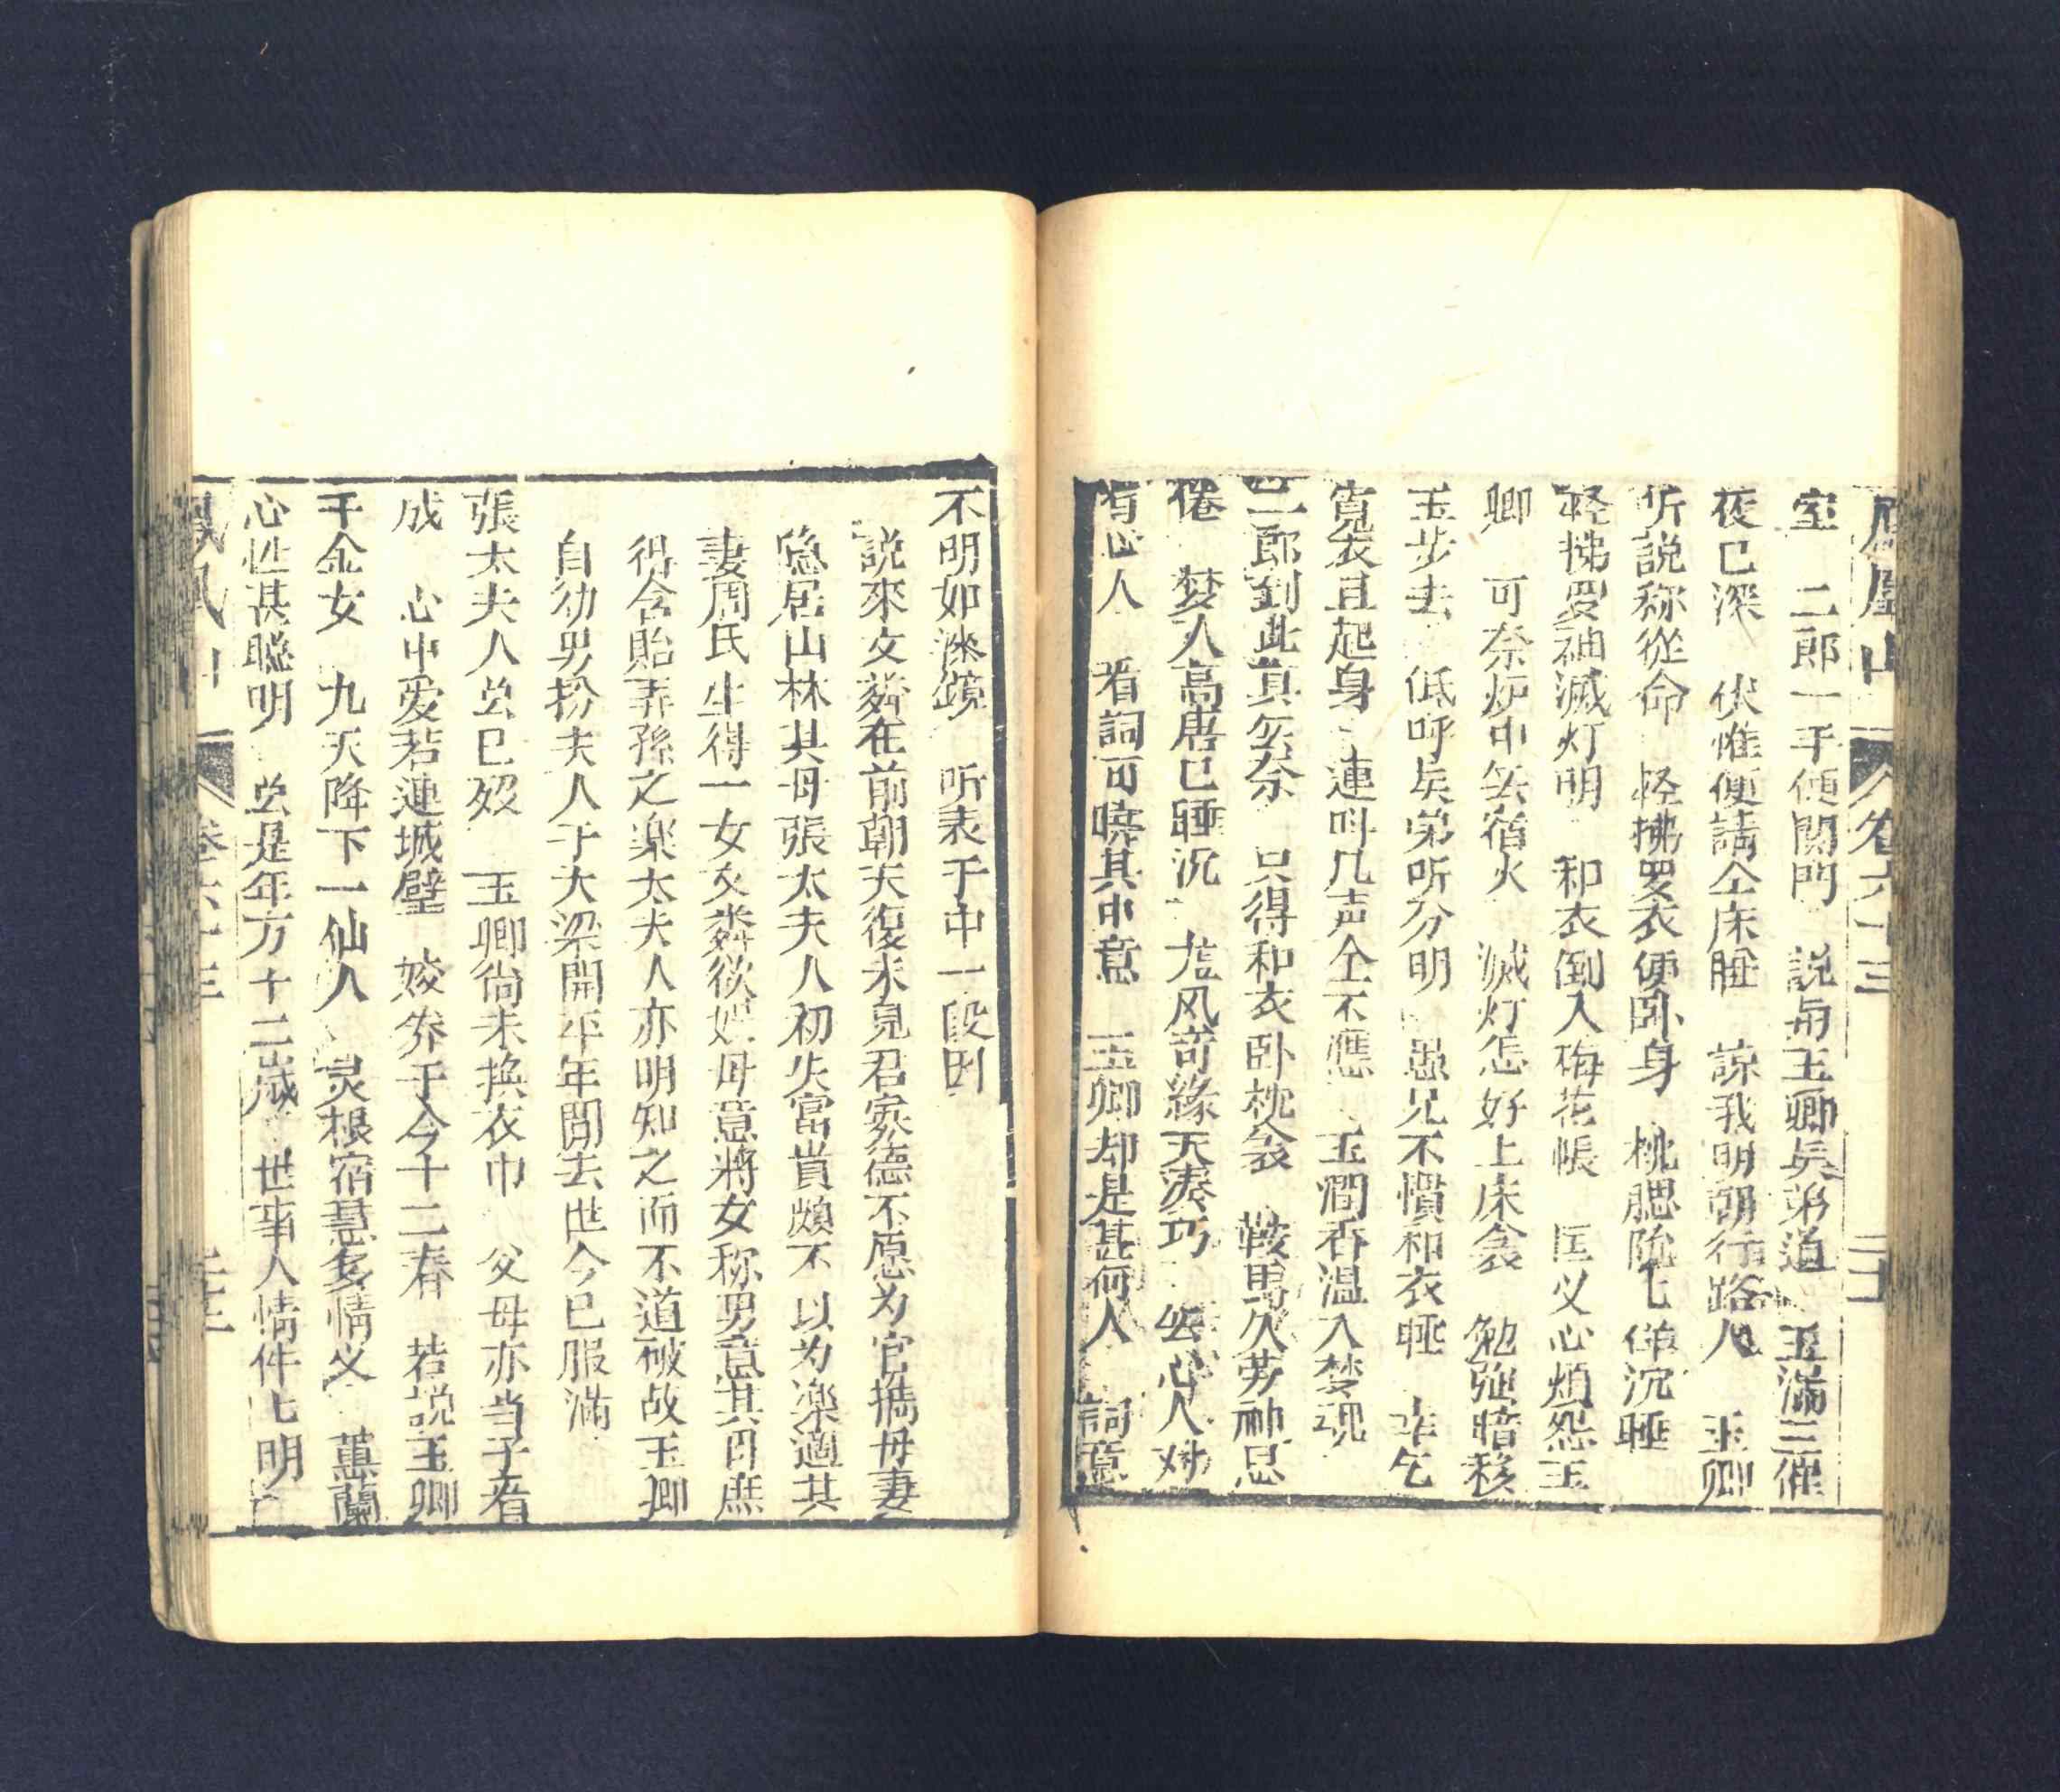 鳳凰山 卷六十三 二十
室 二郎一手便関門 説与王卿矣弟道 玉滿三催
夜已深 伏惟便請仝床睡 諒我明朝行路人 玉卿
听説称從命 輕拂罗衣便卧身 桃腮 沉睡
輕拂罗袖滅灯明 和衣倒入梅花帳 匡义心煩怨玉
卿 可奈炉中 宿火 滅灯怎好上床衾 勉强暗移
玉步去 低呼矣弟听分明 愚兄不慣和衣睡 幸乞
寬衣且起身 連叫几声仝不應 玉潤香温入梦魂
二郎到此真無奈 只得和衣卧枕衾 鞍馬久劳神思
倦 梦入高唐已睡沉 风奇緣天湊巧 人
有世人 看詞可曉其中意 玉卿却是甚何人 詞意
不明如 疏 听表于中一段因
説來文粦在前朝天復末見君家德不愿为官携母妻
隐居山林其母張太夫人初失富貴頗不以为楽適其
妻周氏生得一女文粦欲娛母意將女称男意其母庶
得含貽弄孫之楽太夫人亦明知之而不道破故玉卿
自幼男扮夫人于大梁開平年間去世今已服滿
張太夫人虽已歿 玉卿尚未換衣巾 父母亦当子看
成 心中爱若連城璧 姣养于今十二春 若説玉卿
千金女 九天降下一仙人 灵根宿慧多情义 蕙蘭
心性甚聪明 虽是年方十二歲 世事人情件匕明
鳳凰山 卷六十三